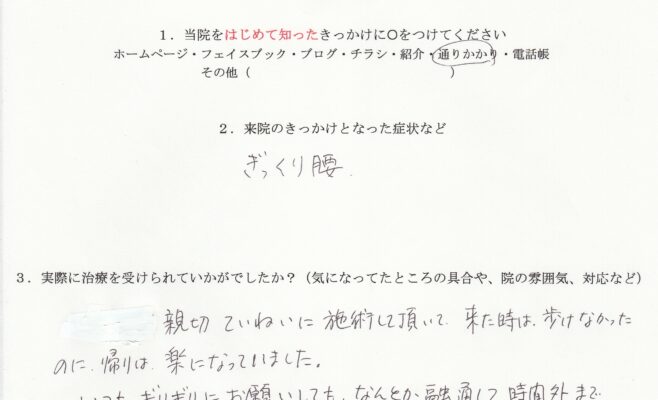 1．当院をはじめて知ったきっかけに○をつけてください
ホームページ・フェイスブック・ブログ・チラシ・紹介・通りかかり・電話帳
その他（　　　　　　　　　　　　　　）
2．来院のきっかけとなった症状など
ぎっくり腰.
3．実際に治療を受けられていかがでしたか？（気になってたところの具合や、院の雰囲気、対応など）
親切 ていねいに 施術して頂いて、来た時は、歩けなかった
のに、帰りは、楽になっていました。
いつも ギリギリに お願いしても、なんとか 融通して 時間外まで